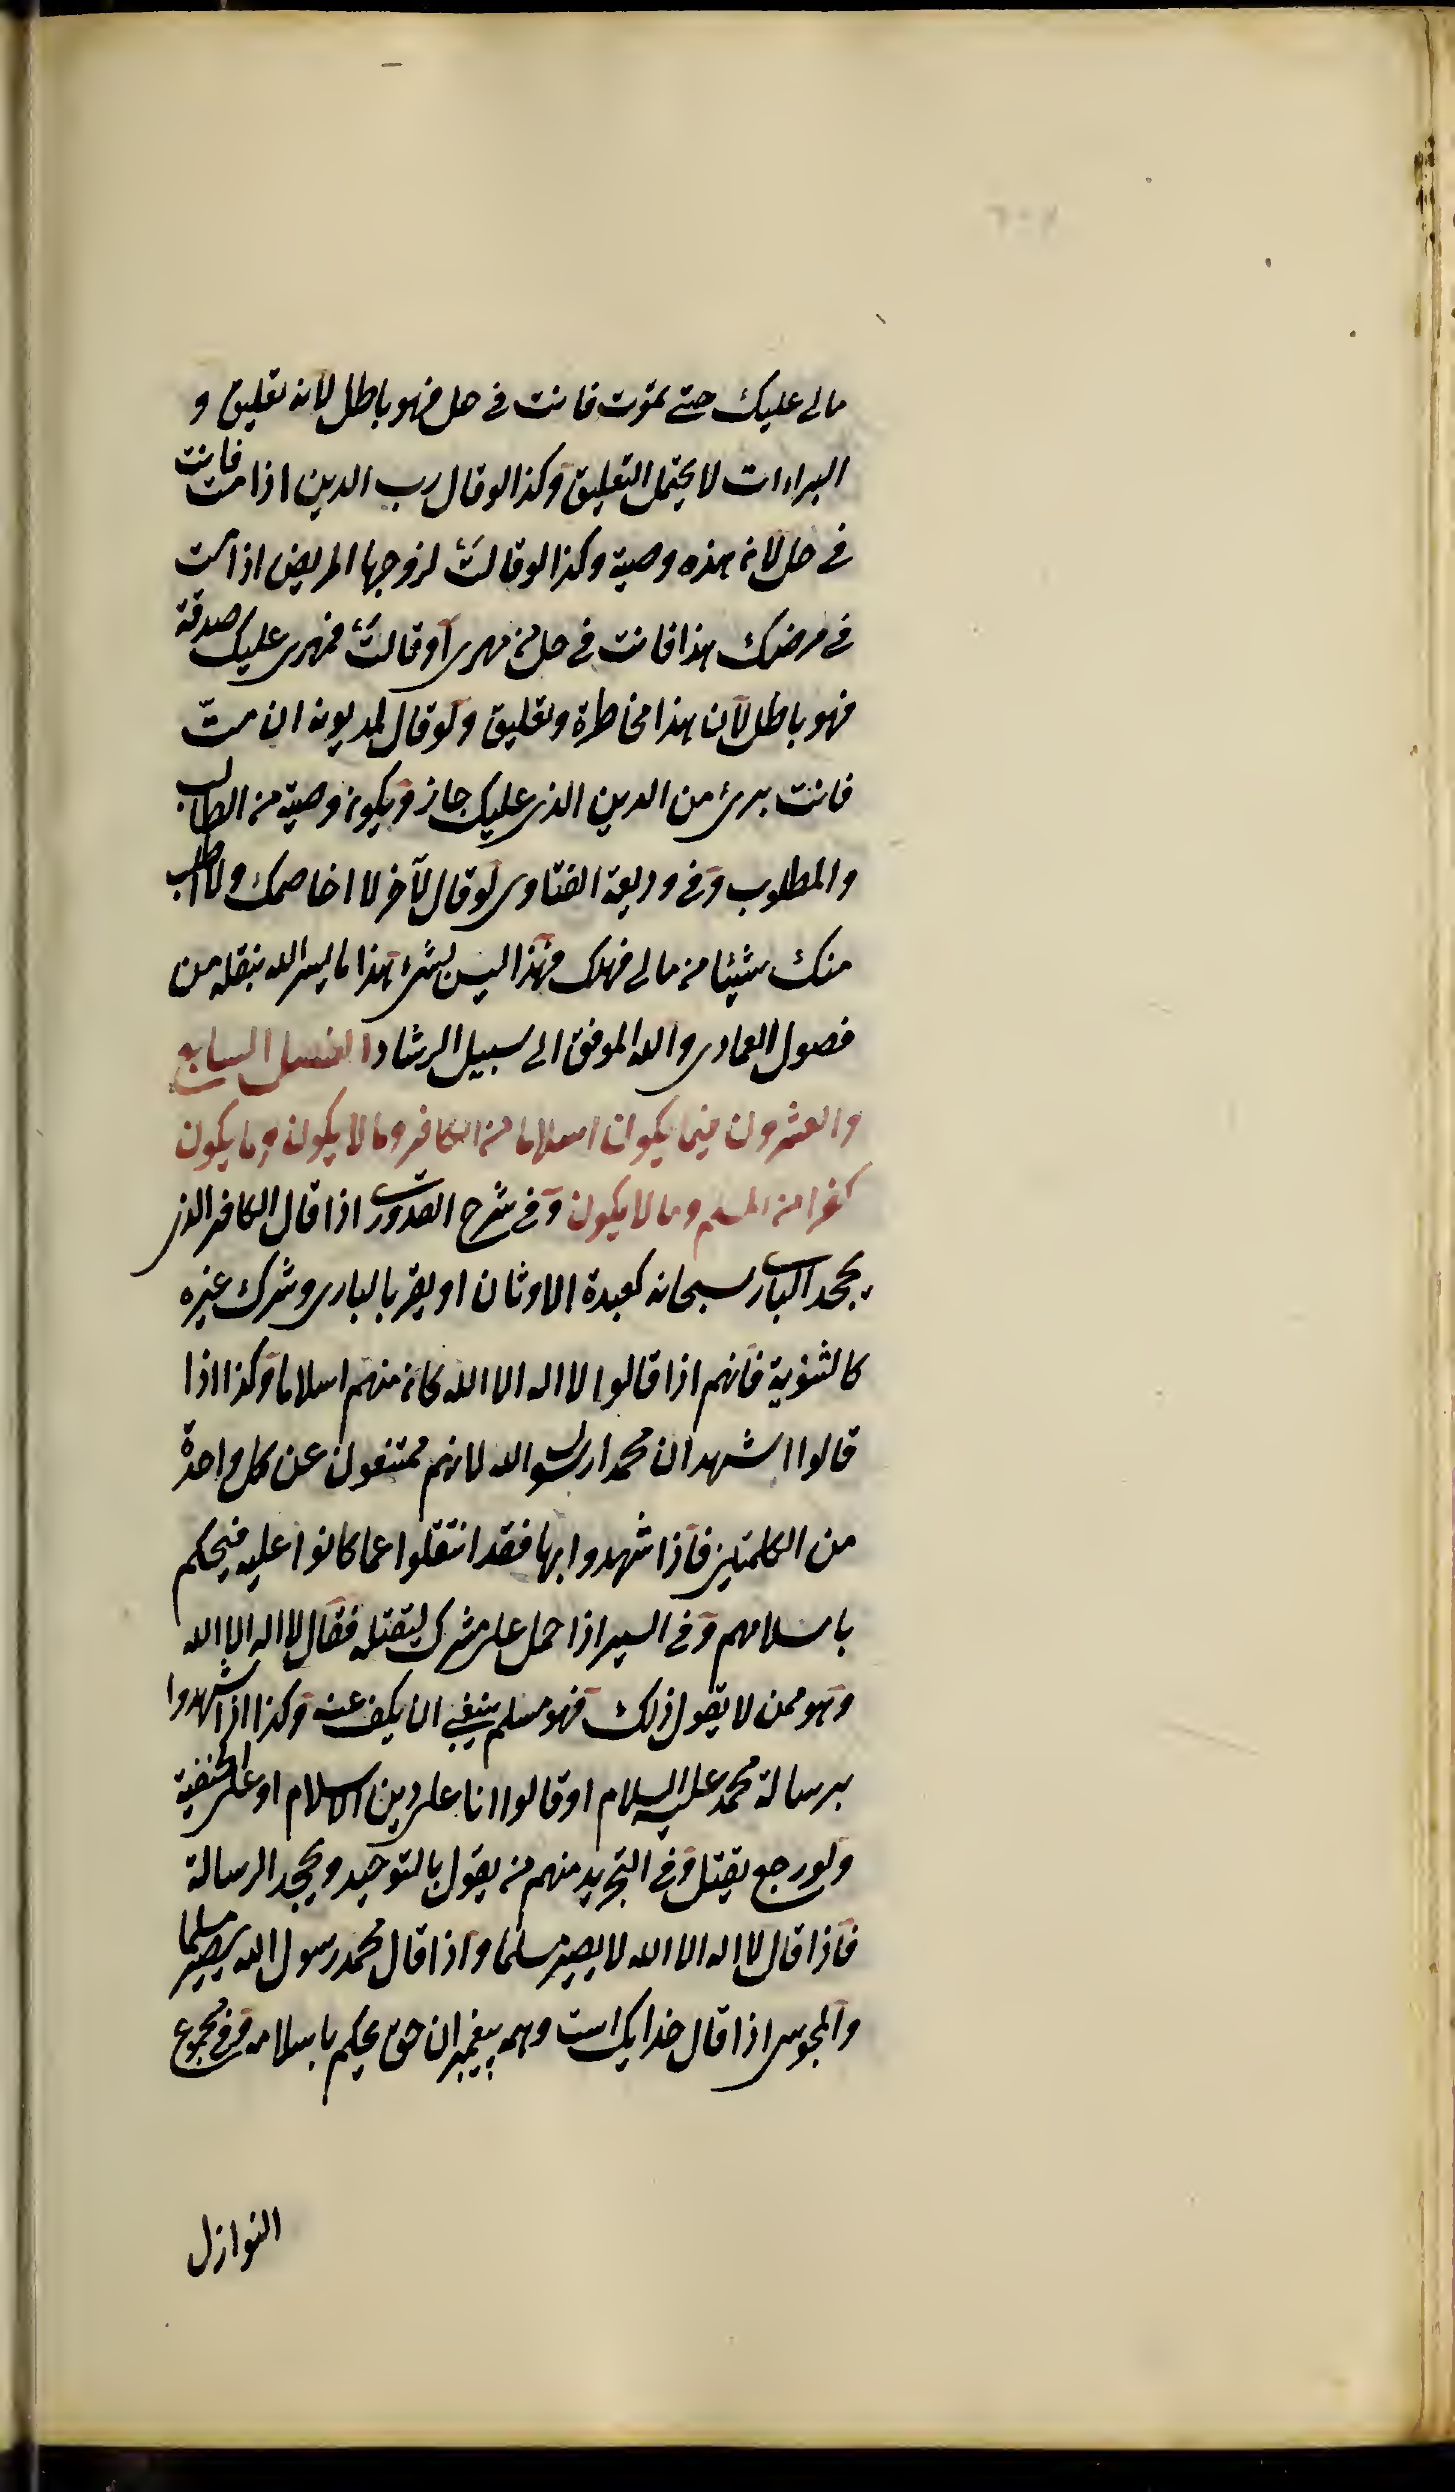 مالى عليك حتى تموت فانت فى حل فهو باطل لانه تعليق و
البراءات لا يحتمل التعليق وكذا لو قال رب الدين اذا مت فانت
فى حل لان هذه وصية وكذا لو قالت لزوجها المريض اذا مت
فى مرضك هذا فانت فى حل من مهرى او قالت فمهرى عليك صدقة
فهو باطل لان هذا مخاطرة وتعليق ولو قال لمديونه ان متّ
فانت برئ من الدين الذى عليك جاز ويكون وصية من الطالب
والمطلوب وفى وديعة الفتاوى لو قال لآخر لا اخاصمك ولا اطلب
منك شيئا من مالى فهلك فهذا ليس بشئ هذا ما يسر الله بنقله من
فصول العمادى والله الموفق الى سبيل الرشاد الفصل السابع
والعشرون فيما يكون اسلاما من الكافر وما لا يكون وما يكون
كفرا من المسلم وما لا يكون وفى شرح القدورى اذا قال الكافر الذى
يجحد البارى سبحانه كعبدة الاوثان او يقر بالبارى وشرك غيره
كالثنوية فانهم اذا قالوا لا اله الا الله كان منهم اسلاما وكذا اذا
قالوا اشهد ان محمدا رسول الله لانهم ممتنعون عن كل واحدة
من الكلمتين فاذا شهدوا بها فقد انتقلوا عما كانوا عليه فيحكم
باسلامهم وفى السير اذا حمل على مشرك ليقتله فقال لا اله الا الله
وهو ممن لا يقول ذلك فهو مسلم ينبغى ان يكف عنه وكذا اذا شهدوا
برسالة محمد عليه السلام او قالوا انا على دين الاسلام او على الحنفية
ولو رجع يقتل وفى التجريد منهم من يقول بالتوحيد ويجحد الرسالة
فاذا قال لا اله الا الله لا يصير مسلما واذا قال محمد رسول الله يصير مسلما
والمجوسى اذا قال خدا يك است وهمه پيغمبران حق يحكم باسلامه وفى مجموع
النوازل